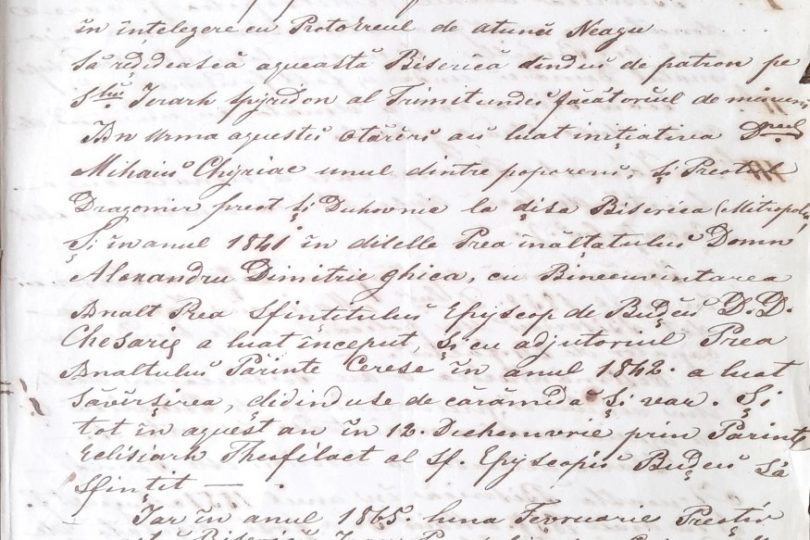 în înțelegere cu Protoiereul de atunci Neagu
să rididească aqueastă Biserică dindui de patron pe
Stul Ierarh Spyridon al Trimitundei făcătoriul de minuni
În urma aquestei otărâri au luat inițiativa
Mihaiu Chyriac unul dintre poporeni, și Preotul
Dragomir preot și Duhovnic la disa Biserica (Mitropol
Și în anul 1841 în dillele Prea înălțatului Domn
Alexandru Dimitrie ghica, cu Bineeuvîntarea
Înalt Prea Sfintitului Episcop de Budĕu D.D.
Chesarie a luat început, și cu adjutoriul Prea
Înaltului Părinte Ceresc în anul 1842. a luat
Săvêrșirea, didinduse de cărămida Și var. Și
tot în aquest an în 12. Dechemvrie prin Părint
Eclisiarh Theofilact al Sf. Episcopii Budĕu Sâ
Sfințit —
Iar în anul 1865. luna Fevruarie
Biserică